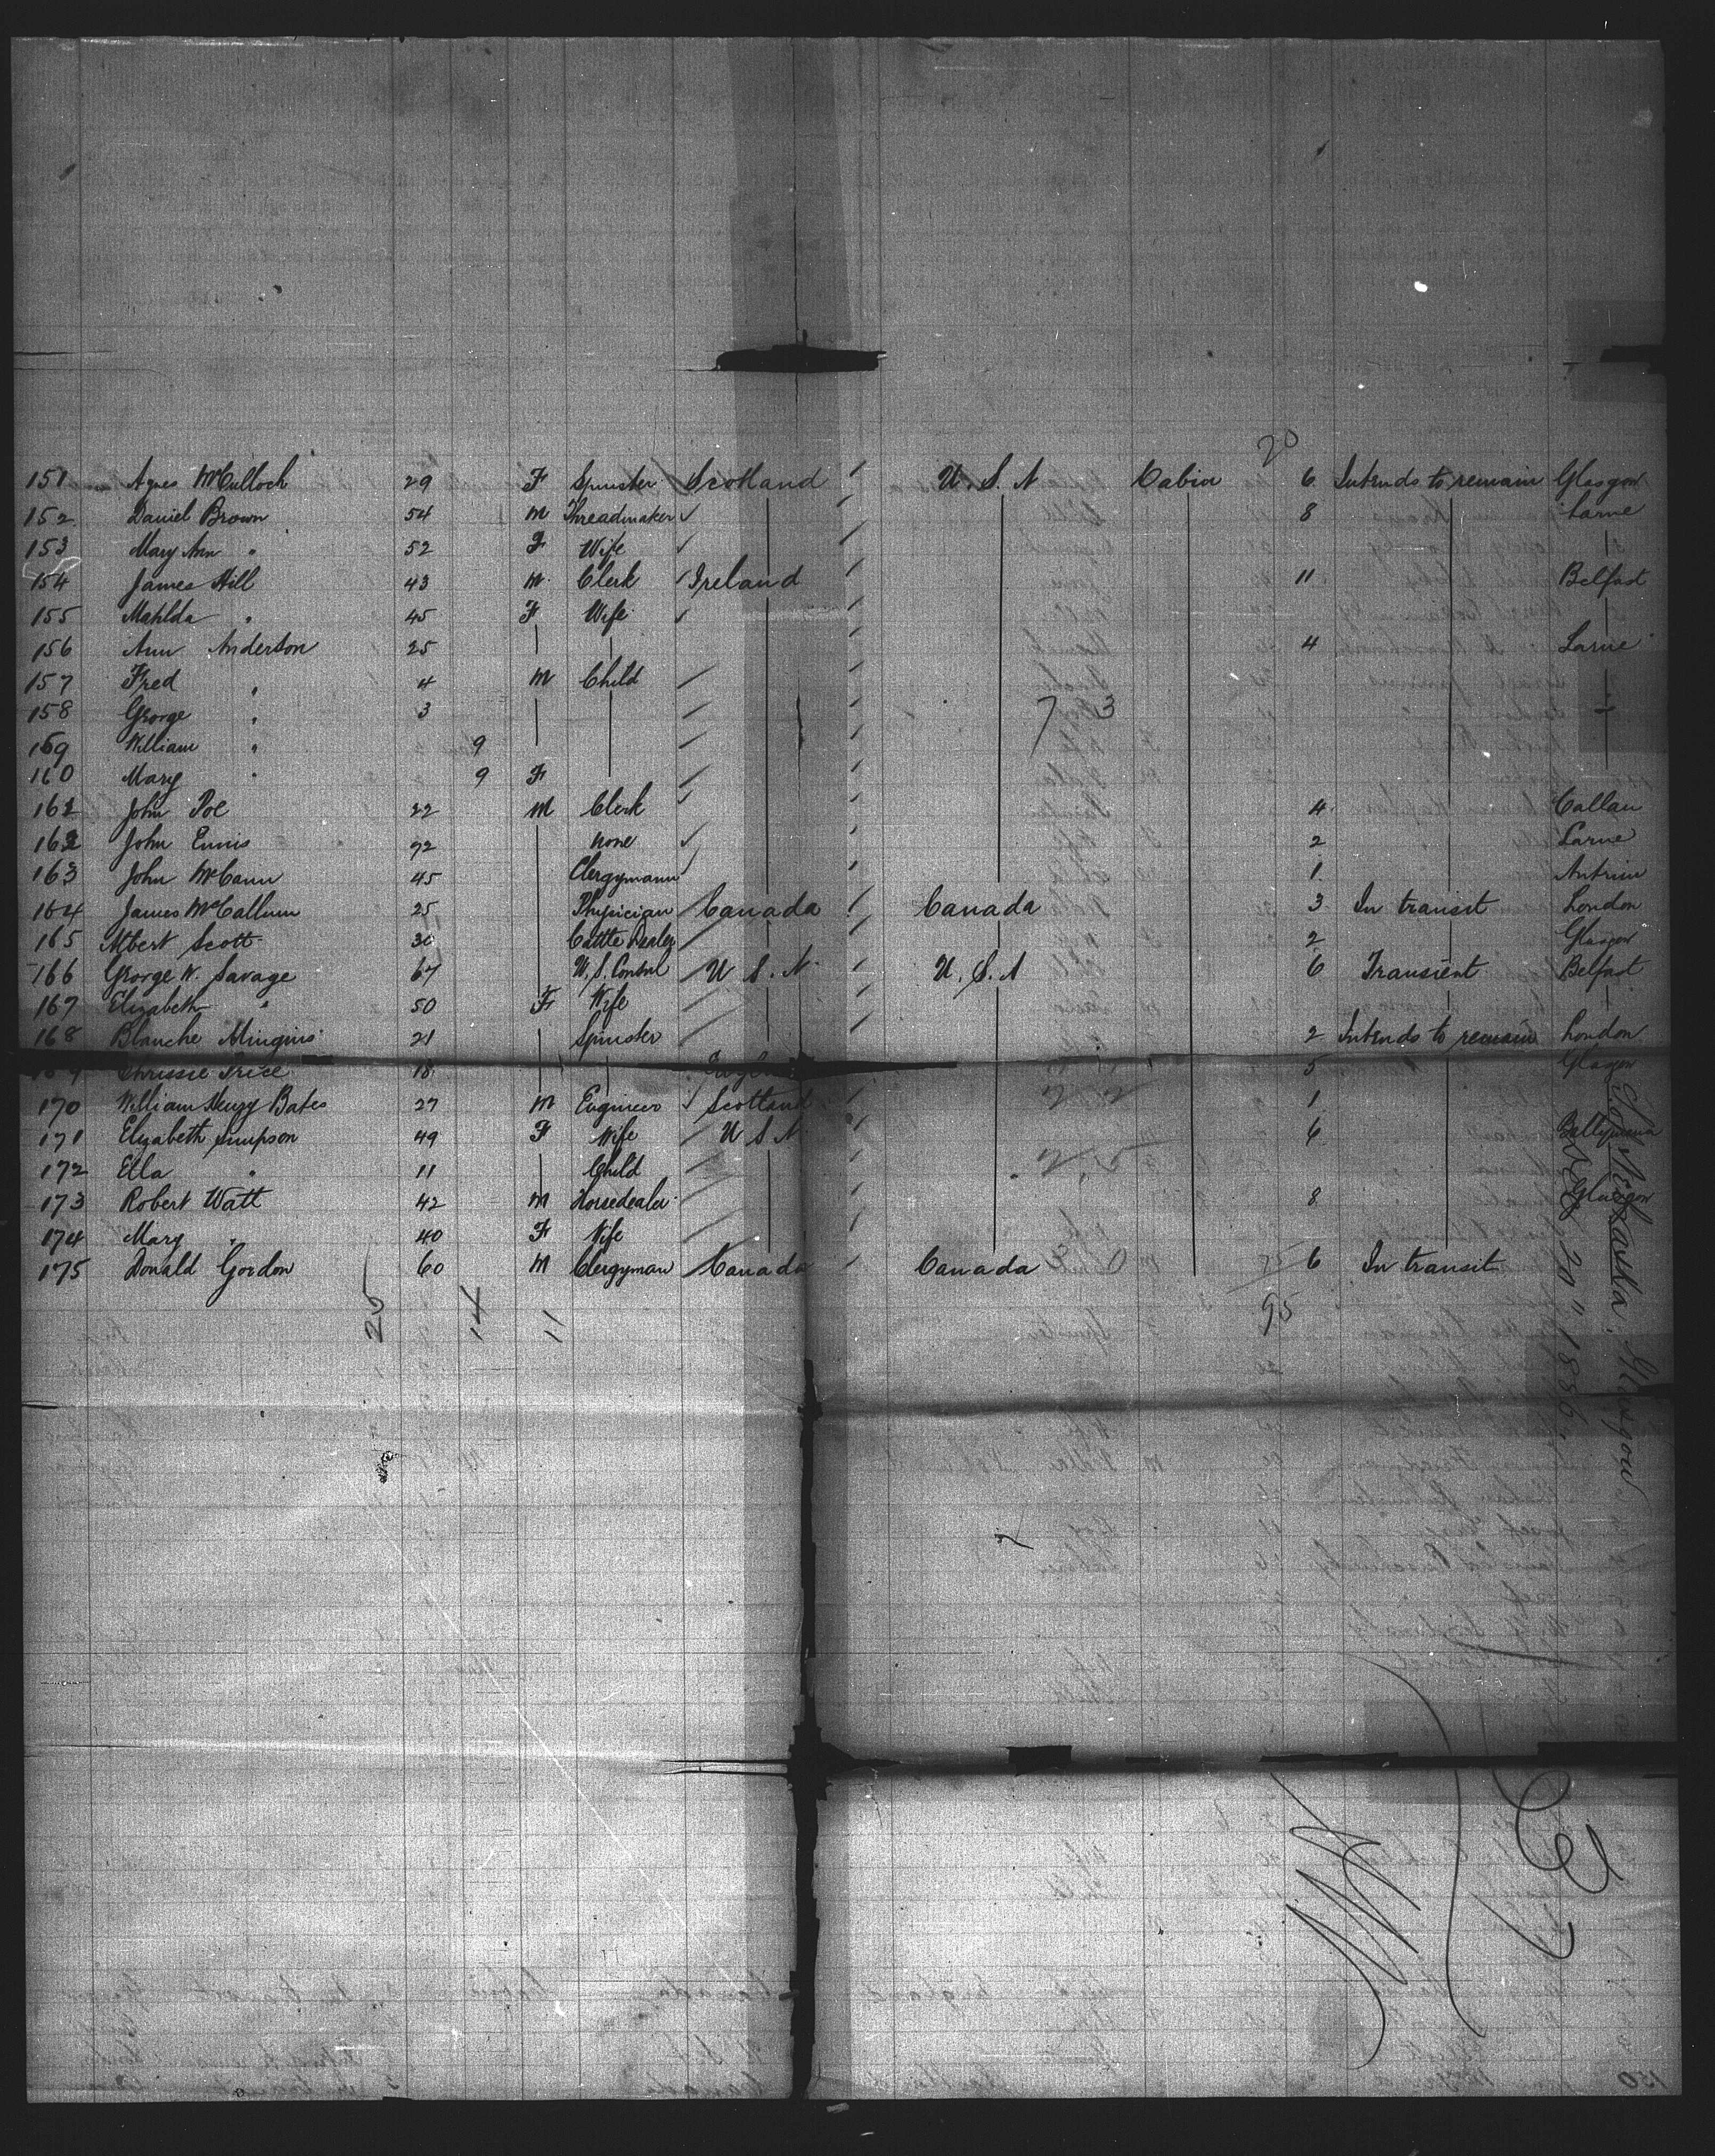 20
151 Agnes McCulloch 29 F Spinster Scotland U.S.A Cabin 6 Intends to remain Glasgow
152 Daniel Brown 54 M Threadmaker 8 Larne
153 Mary Ann " 52 F Wife
154 James Hill 43 M Clerk Ireland 11 Belfast
155 Matilda " 45 F Wife
156 Ann Anderson 25 4 Larne
157 Fred " 4 M Child
158 George " 3 73
159 William " 9
160 Mary " 9 F
161 John Poe 22 M Clerk 4 Callan
162 John Ennis 72 none 2 Larne
163 John McCann 45 Clergymann 1 Antrim
164 James McCallum 25 Physician Canada Canada 3 In transit London
165 Albert Scott 30 Cattle Dealer 2 Glasgow
166 George W. Savage 67 U.S. Consul U.S.A. U.S.A 6 Transient Belfast
167 Elizabeth " 50 F Wife
168 Blanche 21 Spinster 2 Intends to remain London
169 Chrissie Price 18 5 Glasgow
170 William Henry Bates 27 M Engineer Scotland 1
171 Elizabeth Simpson 49 F Wife U S A 6 Ballymena
172 Ella " 11 Child
173 Robert Watt 42 M Horsedealer 8 Glasgow
174 Mary " 40 F Wife
175 Donald Gordon 60 M Clergyman Canada Canada 0 75 6 In transit
25 14 11 95
Nebraska. Glasgow
20" 1886